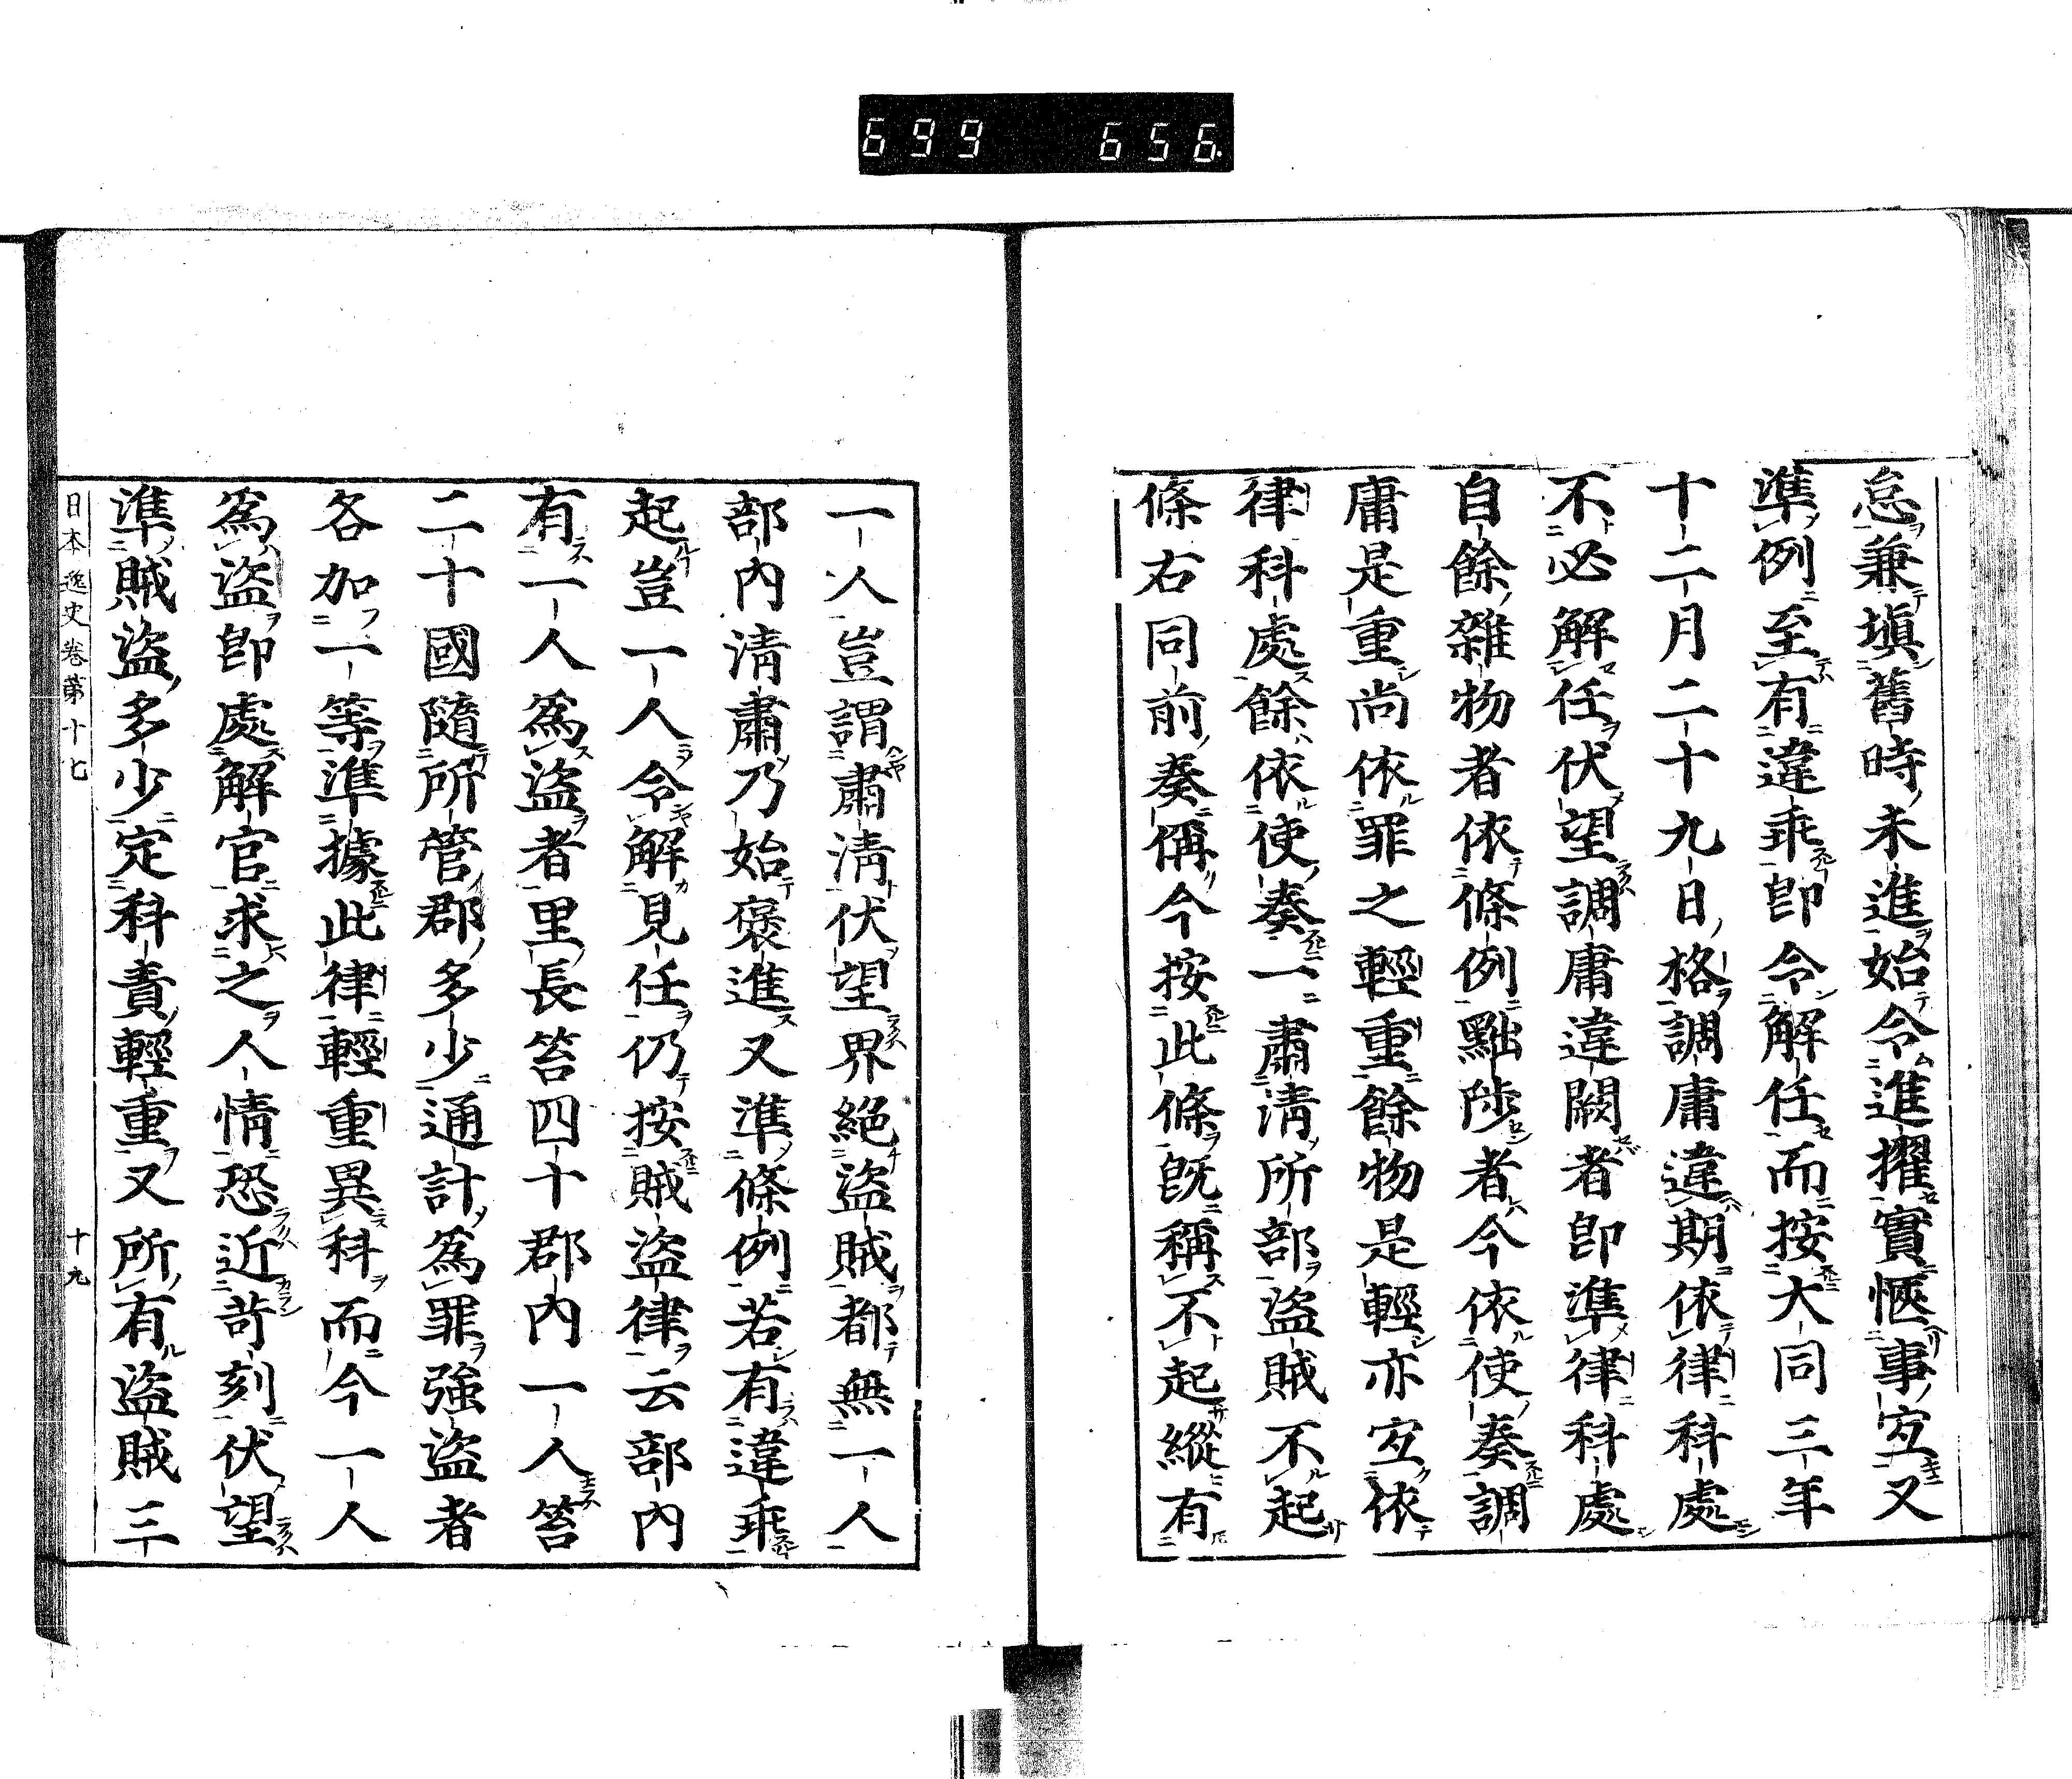 699 656
怠兼塡舊時未進始令進擢實愜事宐又
準例至有違乖卽令解任而按大同三年
十二月二十九日格調庸違期依律科處
不必解任伏望調庸違闕者卽準律科處
自餘雜物者依條例黜陟者今依使奏調
庸是重尚依罪之輕重餘物是輕亦宐依
律科處餘依使奏一肅淸所部盜賊不起
條右同前奏偁今按此條旣稱不起縱有
一人豈謂肅淸伏望界絕盜賊都無一人
部內淸肅乃始褒進又準條例若有違乖
起豈一人令解見任仍按賊盜律云部內
有一人爲盜者里長笞四十郡內一人笞
二十國隨所管郡多少通計爲罪強盜者
各加一等準據此律輕重異科而今一人
爲盜卽處解官求之人情恐近苛刻伏望
準賊盜多少定科責輕重又所有盜賊三
日本逸史卷第十七 十九